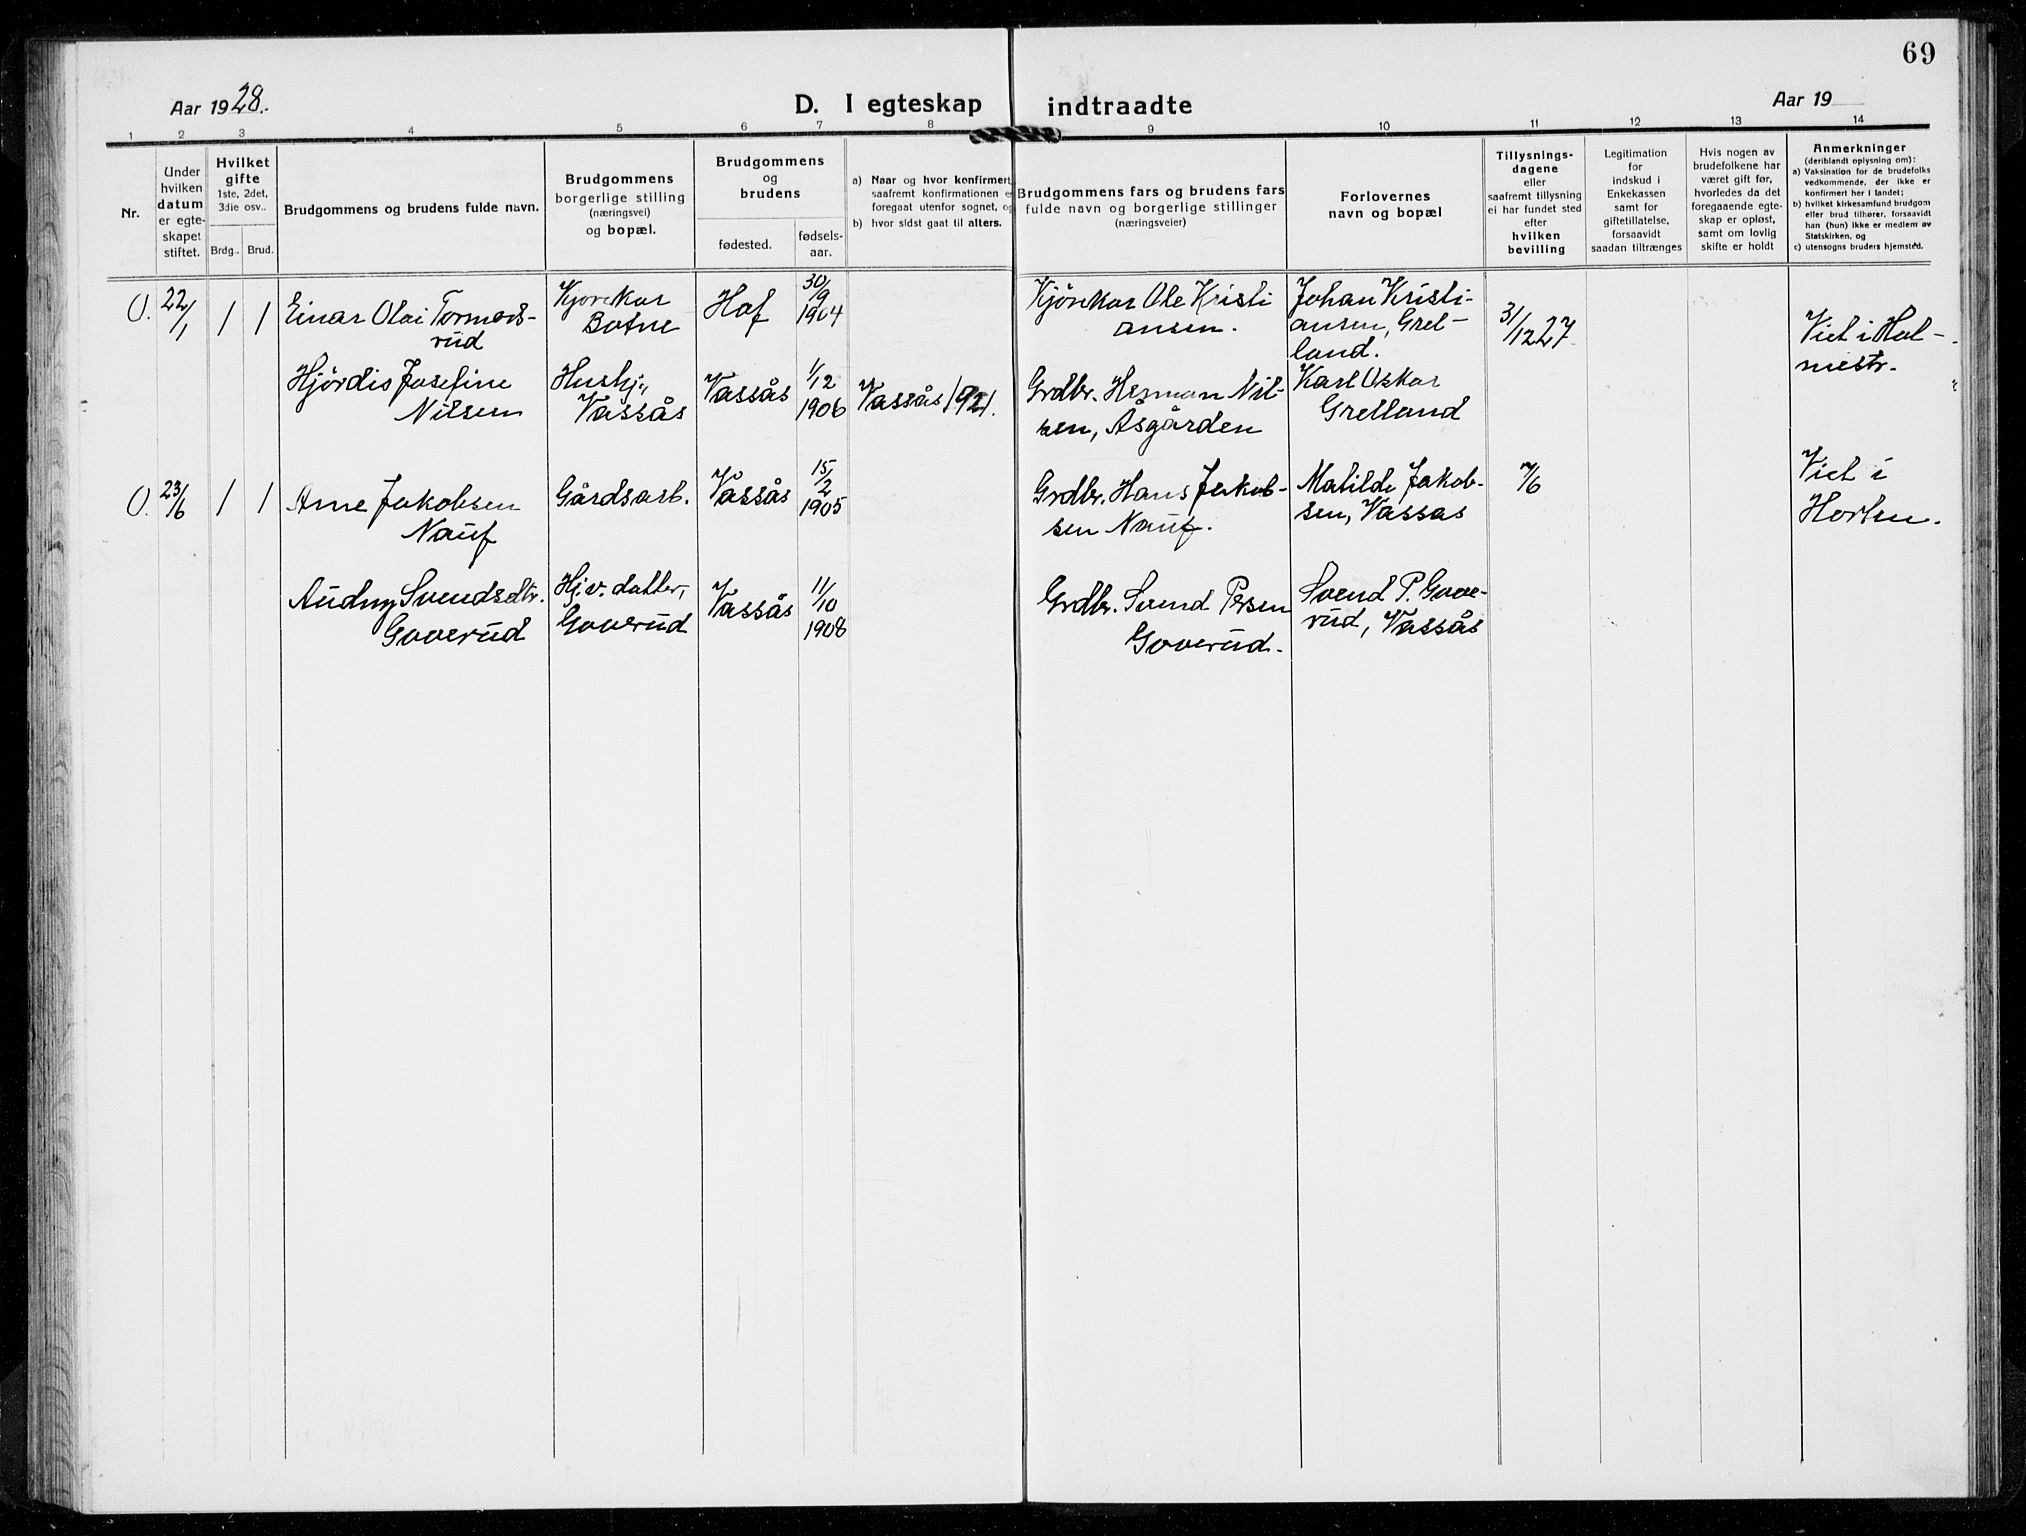 69
Aar 1928.
D. I egteskap indtraadte
Aar 19
1 2 3 4 5 6 7 8 9 10 11 12 13 14
Nr.
Under
hvilken
datum
er egte-
skapet
stiftet.
Hvilket
gifte
1ste, 2det,
3die osv..
Brdg.. Brud.
Brudgommens og brudens fulde navn.
Brudgommens
borgerlige stilling
(næringsvei)
og bopæl.
Brudgommens
og
brudens
fødested.
fødsels-
aar.
a) Naar og hvor konfirmert,
saafremt konfirmationen e
foregaat utenfor sognet, og
b) hvor sidst gaat til alters.
Brudgommens fars og brudens fars
fulde navn og borgerlige stillinger
(næringsveier)
Forlovernes
navn og bopæl
Tillysnings-
dagene
eller
saafremt tillysning
ei har fundet sted
efter
hvilken
bevilling
Legitimation
for
indskud i
Enkekassen
samt for
giftetillatelse,
forsaavidt
saadan tiltrænges
Hvis nogen av
brudefolkene har
været gift før,
hvorledes da det
foregaaende egte-
skap er opløst,
samt om lovlig
skifte er holdt
Anmerkninger
(deriblandt oplysning om):
a) Vaksination for de brudefolks
vedkommende, der ikke er
konfirmert her i landet;
b) hvilket kirkesamfund brudgom
eller brud tilhører, forsaavidt
han (hun) ikke er medlem av
Statskirken, og
c) utensogns bruders hjemsted.
0. 22/1 1 1
Einar Olai Tormods-
rud
Kjørekar
Botne
Hof
30/9
1904
Kjörekar Ole Kristi
ansen.
Johan Kristi-
ansen, Grel-
land.
31/12 27.
Viet i Hol-
mestr.
Hjördis Josefine
Nilsen
Hushj.,
Vassås
Vassås
1/12
1906
Vassås 1921.
Grdbr. Herman Nil-
sen, Åsgården
Karl Oskar
Grelland
0. 23/6 1 1
Arne Jakobsen
Nauf
Gårdsarb.
Vassås
15/2
1905
Grdbr. Hans Jakob-
sen Nauf.
Matilde Jakob-
sen, Vassas
7/6
Viet i
Horten.
Audny Svendsdtr.
Goverud
Hj.v. datter,
Goverud
Vassås
11/10
1908
Grdbr. Svend Persen
Goverud.
Svend P. Gove-
rud, Vassås